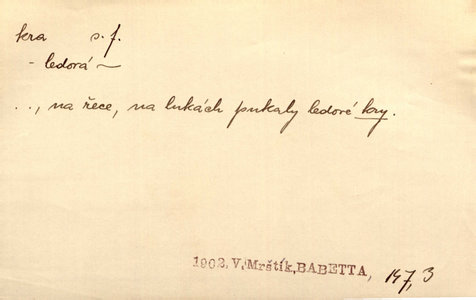 kra s. f.
- ledová ~
..., na řece, na lukách pukaly ledové kry.
1902, V. Mrštík, BABETTA, 147,3